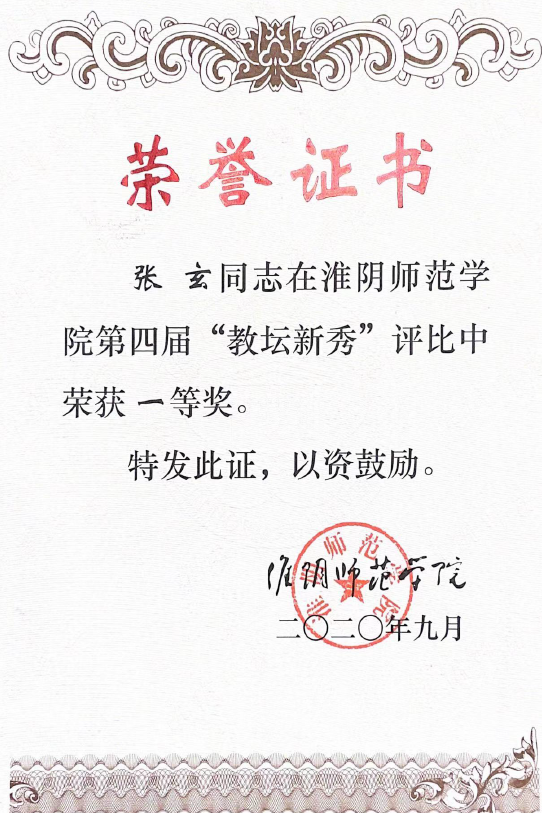 荣誉证书
张玄同志在淮阴师范学
院第四届“教坛新秀”评比中
荣获一等奖。
特发此证，以资鼓励。
淮阴师范学院
淮阴师范学院
二〇二〇年九月